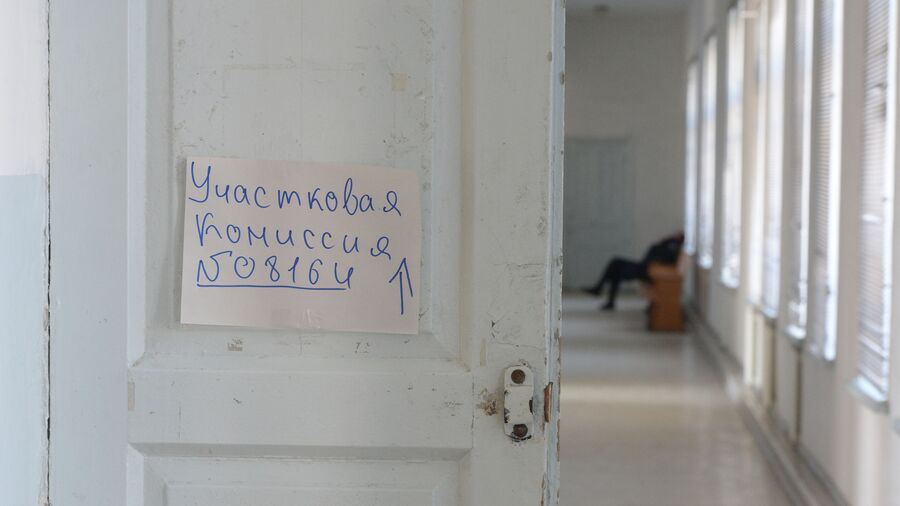 Участковая
комиссия
№ 08164 ↑